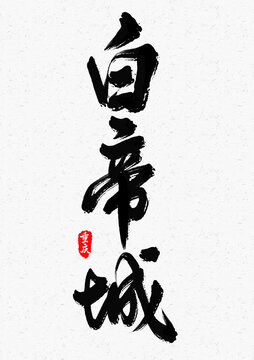 白帝城
重庆